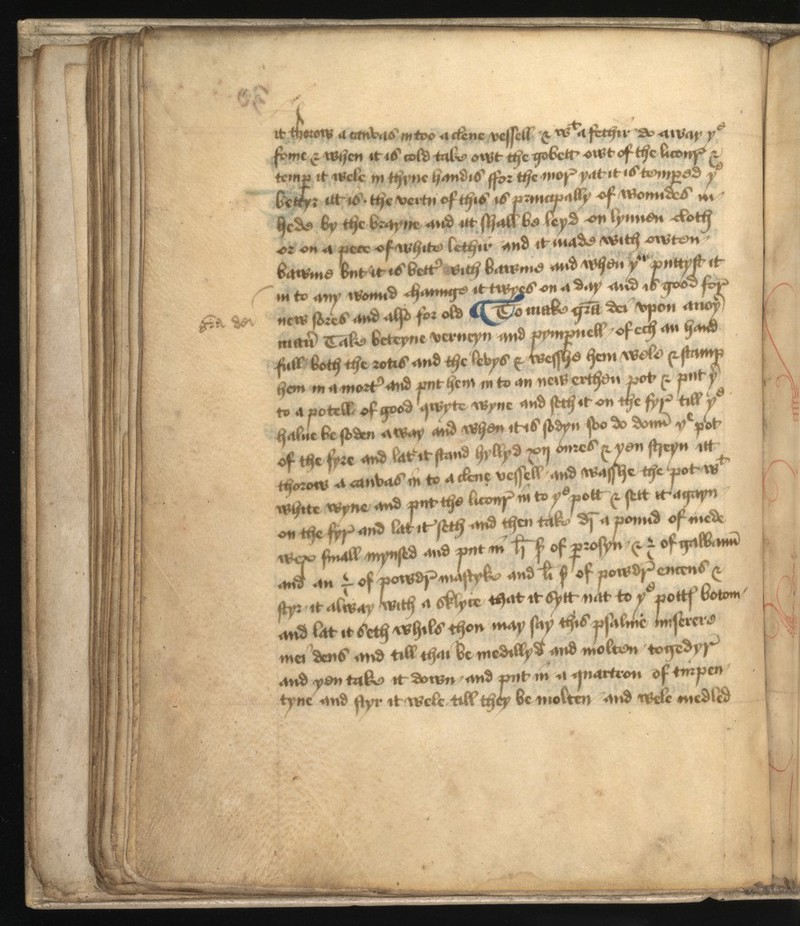 it thorow a canvas in too a clene vessell & wt a fethir do away ye
fome & when it is cold take owt the gobett owt of the licour &
temper it wele in thyne handis ffor the mor yat it is tempered ye
bettyr itt is the vertu of this is principally of woundes in
hede by the brayne and itt shall be leyd on lynnen cloth
or on a pece of white lethir and it made with owten
bawme but it is bettr with bawme and when yu puttyst it
in to any wound chaunge it twyes on a day and is good for
new sores and also for old ¶ To make gra dei vpon
gra dei
man Take beteyne verueyn and pympernell of ech an hand
full both the rotis and the levys & wesshe hem wele & stamp
hem in a morter and put hem in to an new erthen pot & put yer
to a potell of good qwyte wyne and seth it on the fyr till ye
halue be soden away and when it is sodyn soo do doun ye pot
of the fyre and lat it stand hyllyd xij oures & yen streyn itt
thorow a canvas in to a clene vessell and wasshe the pot wt
white wyne and put the licour in to ye pott & sett it agayn
on the fyr and lat it seth and then take di a pound of
wex small mynsed and put in of perosyn & ℥ of galbanu
and an ℥ of powdr mastyke and of powdr encens &
styr it alway with a sklyce that it sytt nat to ye pottes botom
and lat it seth whils thou may say this psalme miserere
mei deus and till thai be medillyd and molten togedyr
and yen take it down and put in a quartron of turpen
tyne and styr it wele till they be molten and wele medled